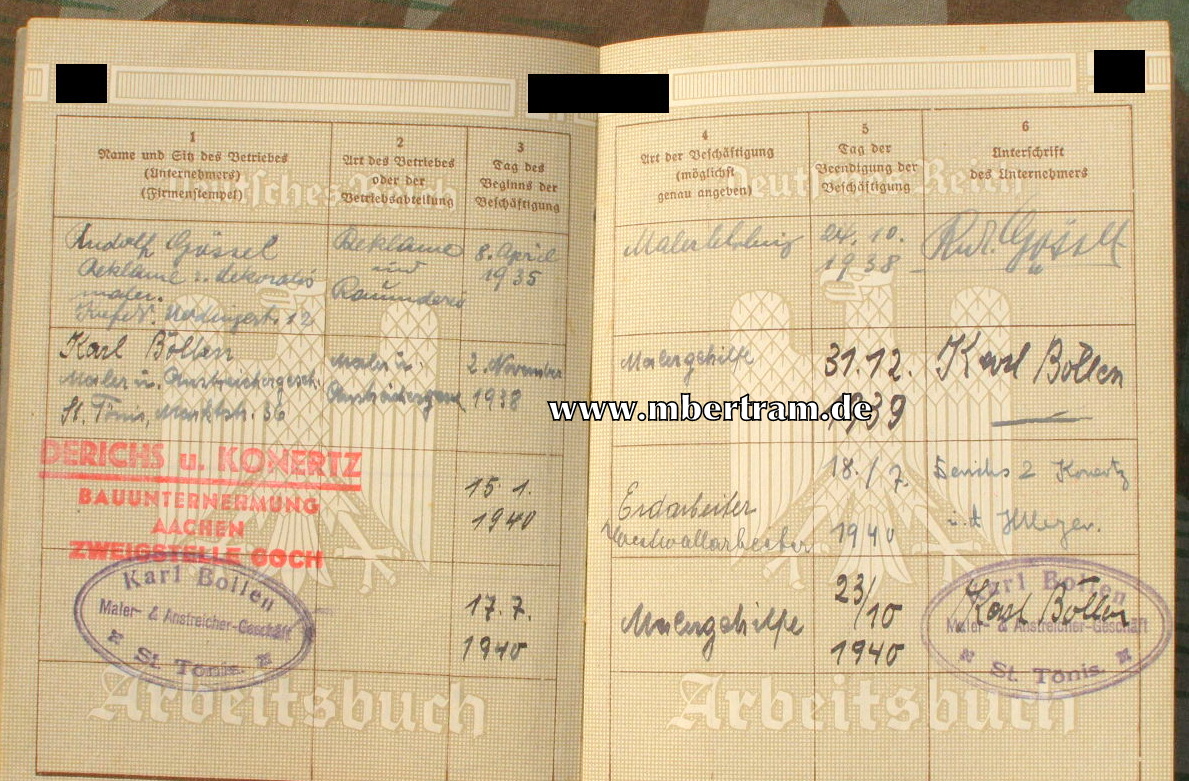 1
Name und Sitz des Betriebes
(Unternehmers)
(Firmenstempel)
2
Art des Betriebes
oder der
Betriebsabteilung
3
Tag des
Beginns der
Beschäftigung
Rudolf Gössel
Reklame u.
maler.
12
Reklame
und
8. April
1935
Karl Bollen
Maler u.
St. Tönis, Marktstr. 36
Maler u.
2. November
1938
DERICHS u. KONERTZ
BAUUNTERNEHMUNG
AACHEN
ZWEIGSTELLE GOCH
15. 1.
1940
Karl Bollen
Maler- & Anstreicher-Geschäft
St. Tönis.
17. 7.
1940
Arbeitsbuch
4
Art der Beschäftigung
(möglichst
genau angeben)
5
Tag der
Beendigung der
Beschäftigung
6
Unterschrift
des Unternehmers
Deutsches Reich
Malerlehrling
24. 10.
1938
Rud. Gössel
Malergehilfe
31.12.
1939
Karl Bollen
www.mbertram.de
Erdarbeiter
Westwallarbeiter
18./7
1940
Derichs & Konertz
i.A.
Malergehilfe
23/10
1940
Karl Bollen
Karl Bollen
Maler- & Anstreicher-Geschäft
St. Tönis.
Arbeitsbuch